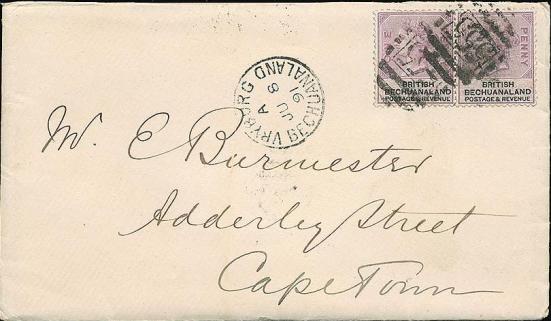 E PENNY
BRITISH BRITISH
BECHUANALAND BECHUANALAND
POSTAGE & REVENUE POSTAGE & REVENUE
VRYBURG BECHUANALAND
A
JU 8
91
Mr. E Burmester
Adderley Street
Cape Town